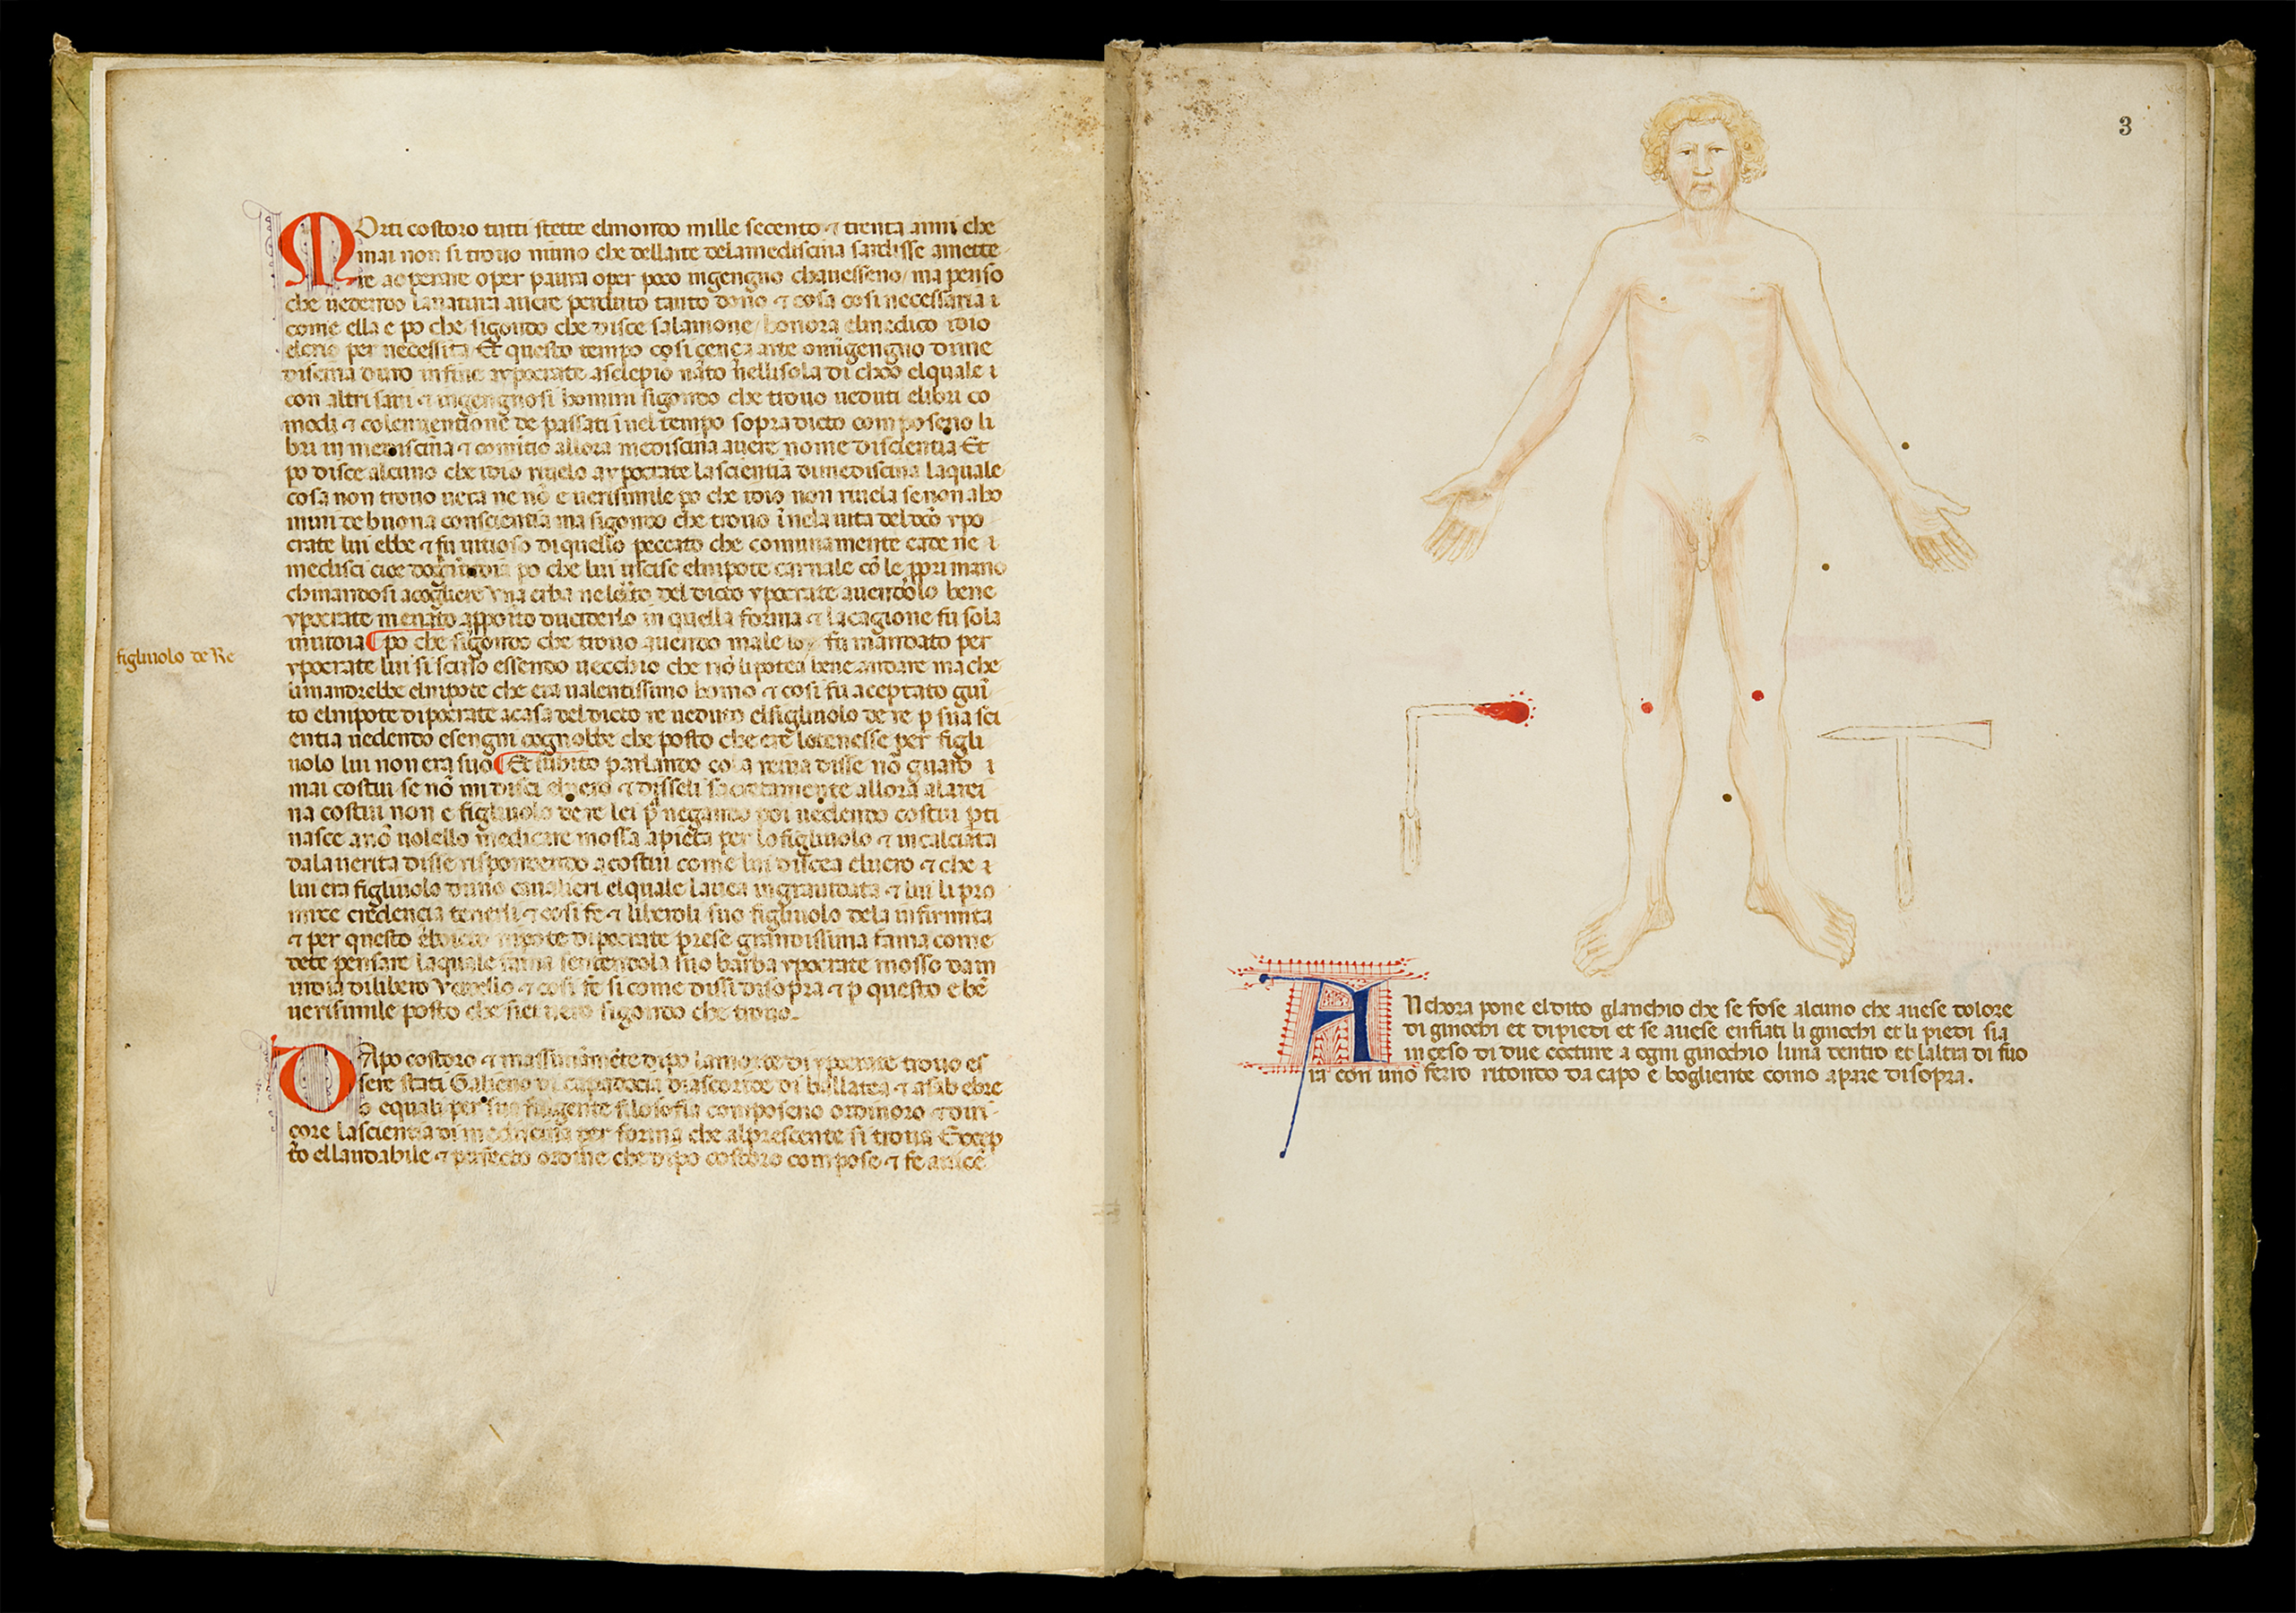 MOrti costoro tutti stette elmondo mille secento ⁊ trenta anni che
mai non si trovo niuno che dellarte delamediscina sardisse amette
re adoperare o per paura o per poco ingengno chavesseno/ma penso
che vedendo lanatura avere perduto tanto dono ⁊ cosa cosi necessaria i
come ella e po che sigondo che disce salamone honora elmedico idio
elcreo per necessita Et questo tempo cosi çença arte o nigengno dime
discina duro infine aypocrate asclepio nato nellisola di choo elquale i
con altri savi ⁊ ingengnosi homini sigondo che trovo veduti elibri co
modi ⁊ colenventione de passati inel tempo sopradicto composeno li
bri in mediscina ⁊ comincio allora mediscina avere nome discientia Et
po disce alcuno che idio rivelo aypocrate lascientia dimediscina laquale
cosa non trovo vera ne nō e verisimile po che idio non rivela senon aho
mini de buona conscientia ma sigondo che trovo inela vita del dcō ypo
crate lui ebbe ⁊ fu vitioso diquello peccato che comunamente cade ne i
medisci cioe po che lui uccise elnipote carnale cō le ppri mano
chinandosi acogliere una erba nelorto del dicto ypocrate avendolo bene
ypocrate menato apposto duciderlo in quella forma ⁊ lacagione fu sola
invidia ¶ po che sigondo che trovo avendo male fu mandato per
figliuolo de Re
ypocrate lui si scuso essendo vecchio che nō li potea bene andare ma che
li mandrebbe elnipote che era valentissimo homo ⁊ cosi fu aceptato giū
to elnipote dipocrate acasa del dicto re veduto elfigliuolo de re p sua sci
entia vedendo esengni cognobbe che posto che ere lotenesse per figli
uolo lui non era suo ¶ Et subito parlando cola reina disse nō guaro i
mai costui se nō mi disci elvero ⁊ disseli sacretamente allora alarei
na costui non e figliuolo de re lei p negando poi vedendo costui pti
nasce a nō volello medicare mossa apieta per lo figliuolo ⁊ incalciata
dala verita disse rispondendo acostui come lui discea elvero ⁊ che i
lui era figliuolo duno cavalieri elquale lavea ingravidata ⁊ lui li pro
mise credencia tenerli ⁊ cosi fe ⁊ liberoli suo figliuolo dela infirmita
⁊ per questo nipote dipocrate prese grandissima fama come
dete pensare laquale fama sentendola suo barba ypocrate mosso da in
vidia dilibero ⁊ cosi fe si come dissi disopra ⁊ p questo e bē
verisimile posto che sigondo che trovo.
DApo costoro ⁊ massimamēte dipo lamorte di ypocrate trovo es
sere stati Galieno di capadocia diascoride di
o equali per sua composeno ordinoro ⁊
core lascientia di medicina per forma che alprescente si trova Excep
to ellaudabile ⁊ pufecto ordine che dipo costoro compose ⁊ fe avicē
3
ANchora pone eldito glanchio che se fose alcuno che avese dolore
di ginochi et dipiedi et se avese enfiati li ginochi et li piedi sia
inceso di due cocture a ogni ginochio luna dentro et laltra di fuo
ra con uno ferro ritondo da capo e bogliente como apare disopra.